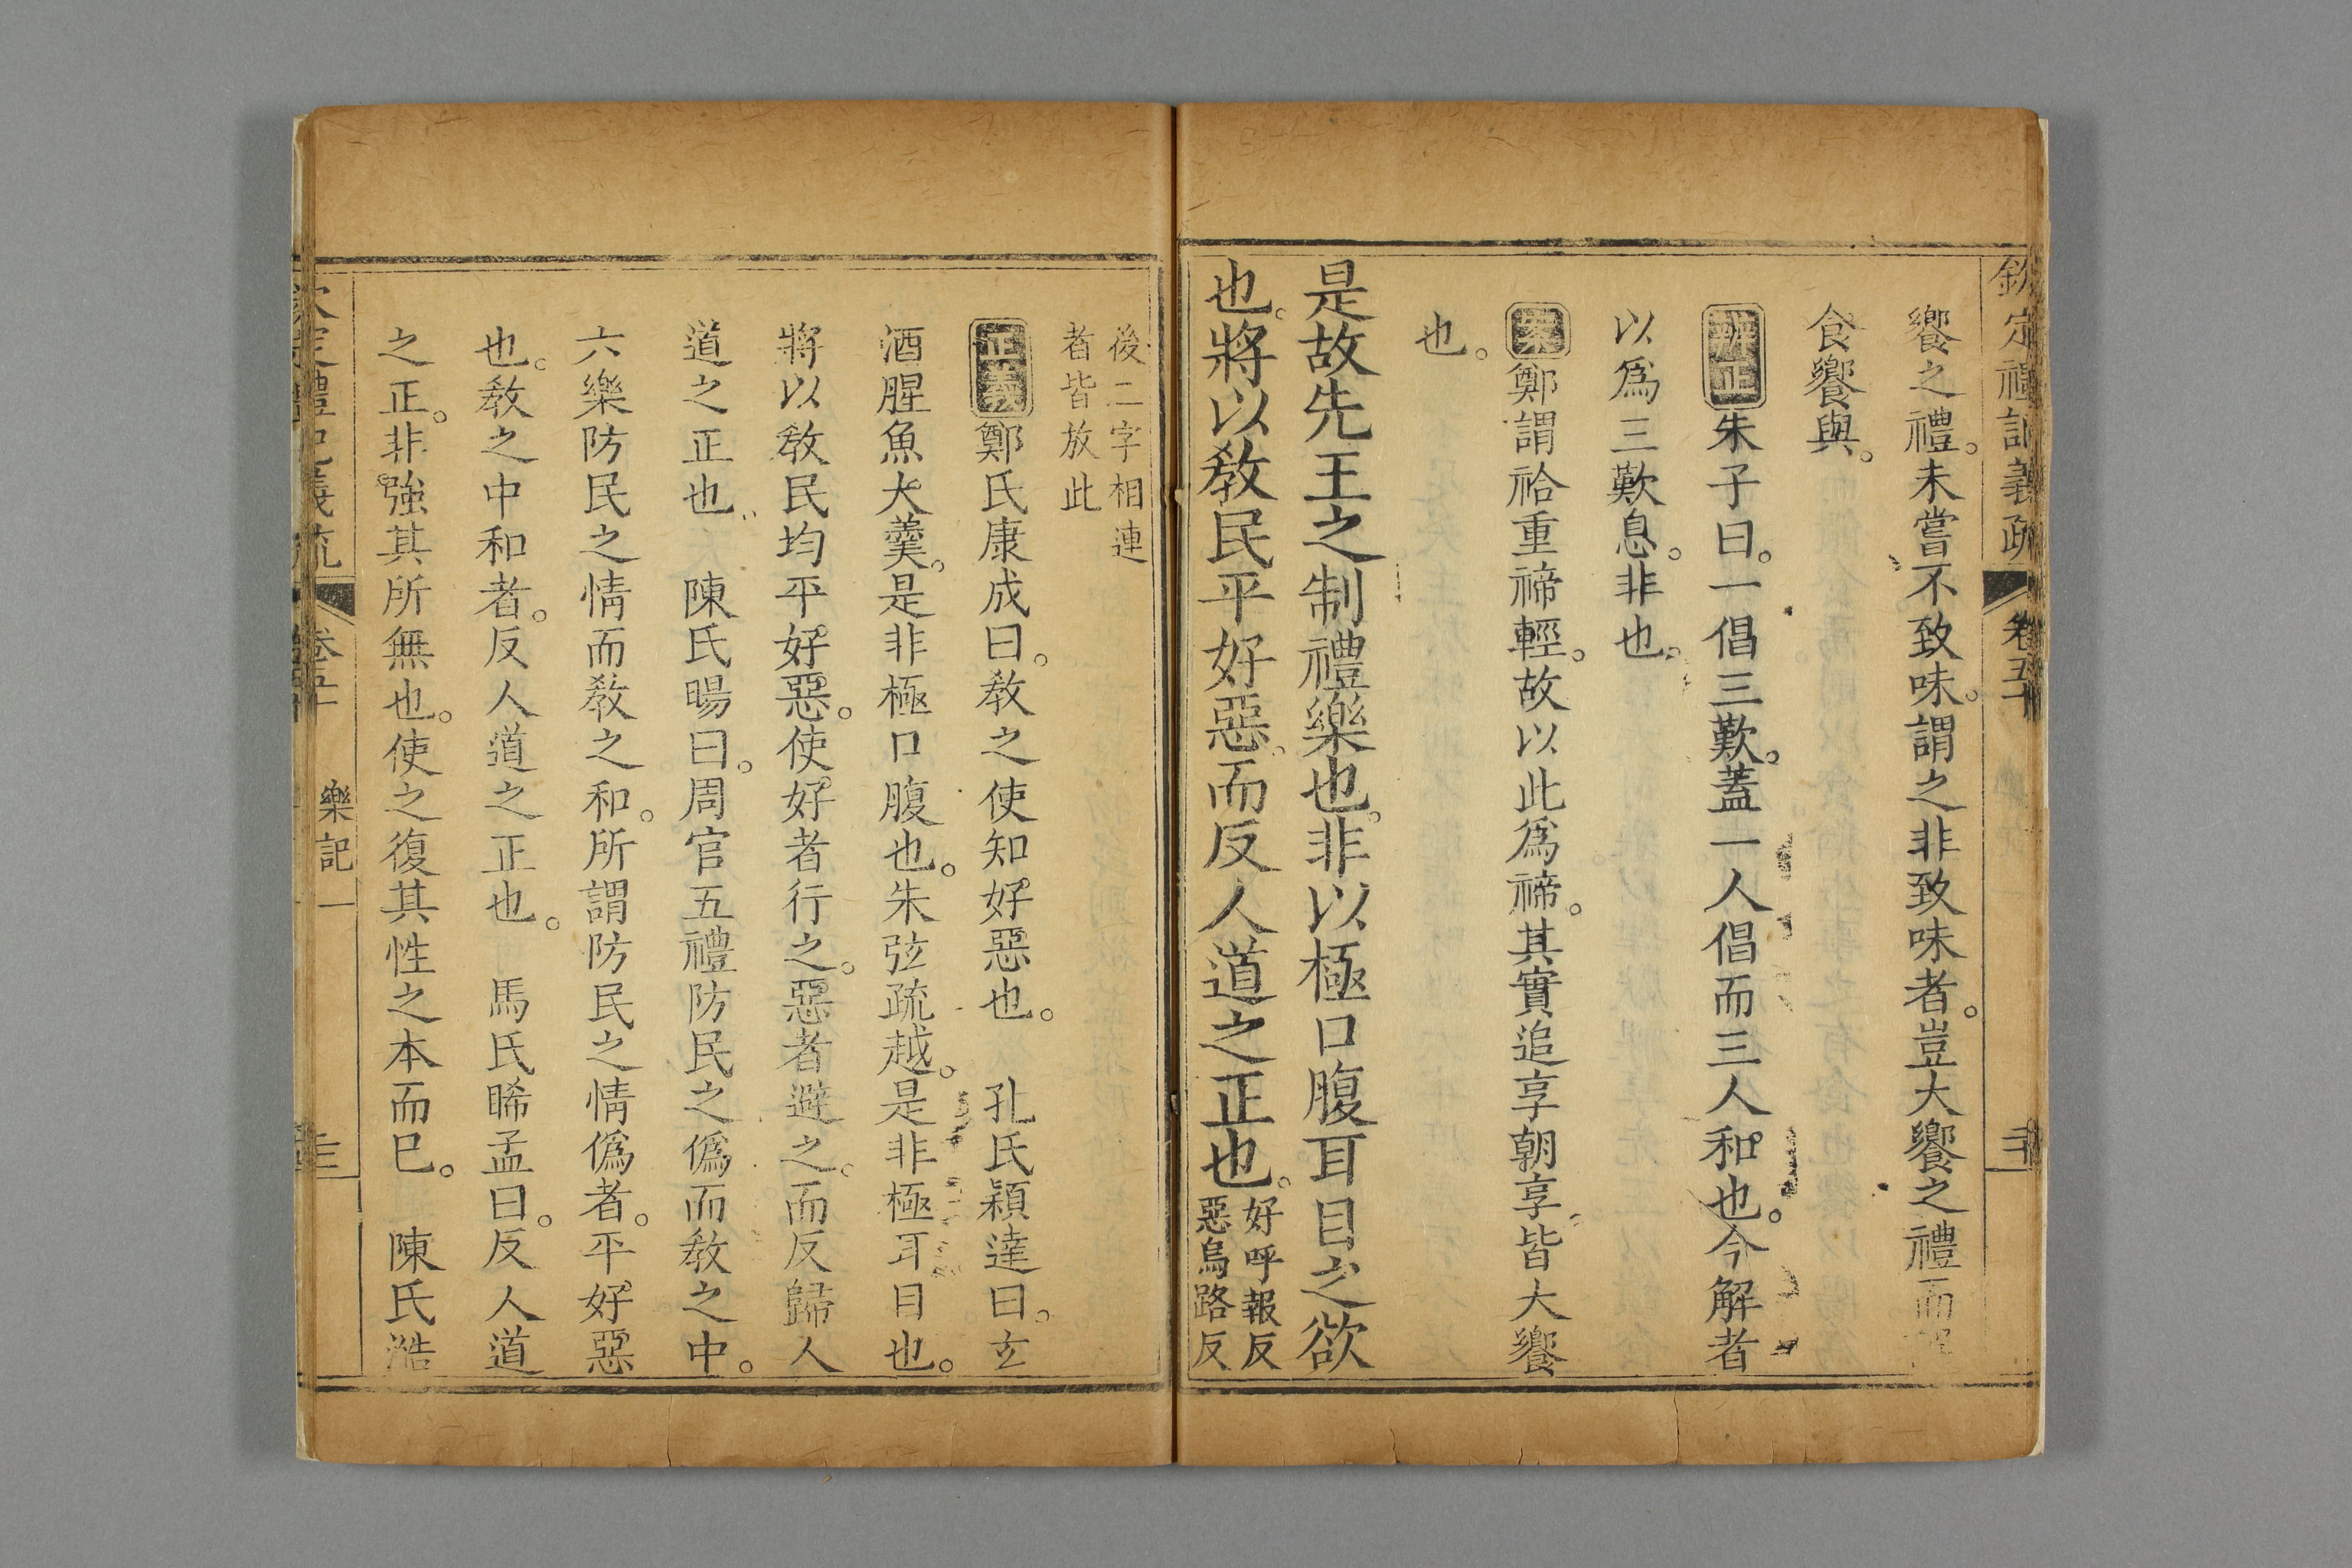 欽定禮記義疏 卷五十
饗之禮。未嘗不致味。謂之非致味者。豈大饗之禮而
食饗與。
辨正朱子曰。一倡三歎。蓋一人倡而三人和也。今解者
以爲三歎息。非也。
案鄭謂祫重禘輕。故以此爲禘。其實追享朝享皆大饗
也。
是故先王之制禮樂也。非以極口腹耳目之欲
也。將以敎民平好惡。而反人道之正也。好呼報反
惡烏路反
後二字相連
者皆放此
正義鄭氏康成曰。敎之使知好惡也。 孔氏穎達曰。玄
酒腥魚大羹。是非極口腹也。朱弦疏越。是非極耳目也。
將以敎民均平好惡。使好者行之。惡者避之。而反歸人
道之正也 陳氏暘曰。周官五禮防民之僞而敎之中。
六樂防民之情而敎之和。所謂防民之情僞者。平好惡
也。敎之中和者。反人道之正也。 馬氏晞孟曰。反人道
之正。非強其所無也。使之復其性之本而已。 陳氏澔
欽定禮記義疏 卷五十 樂記一